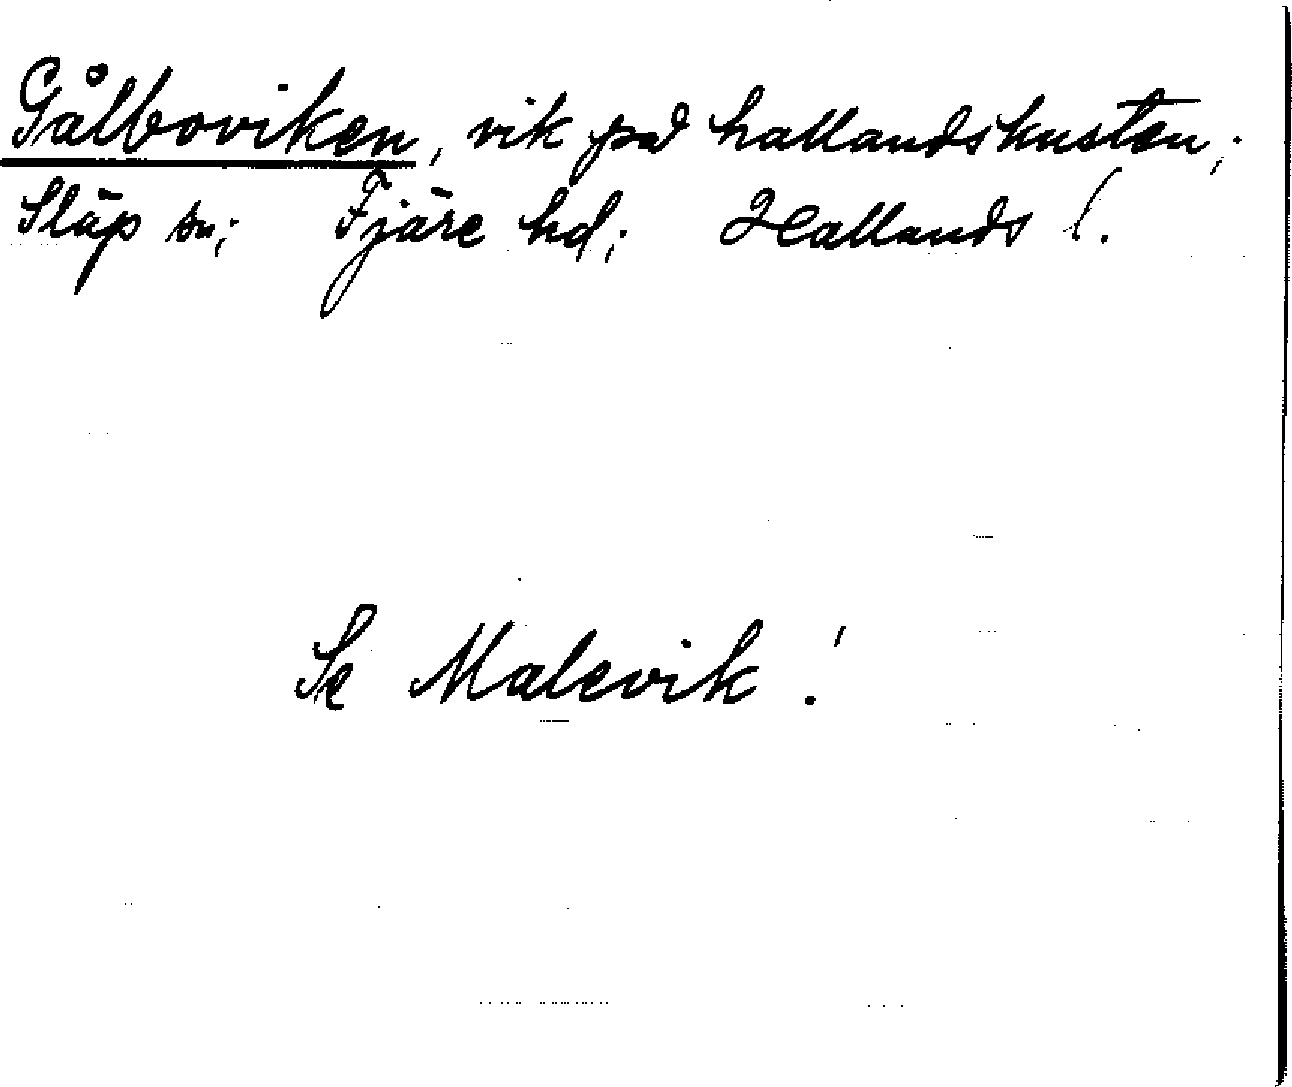 Gålboviken, vik på hallandskusten;
Släp sn; Fjäre hd; Hallands l.
Se Malevik!